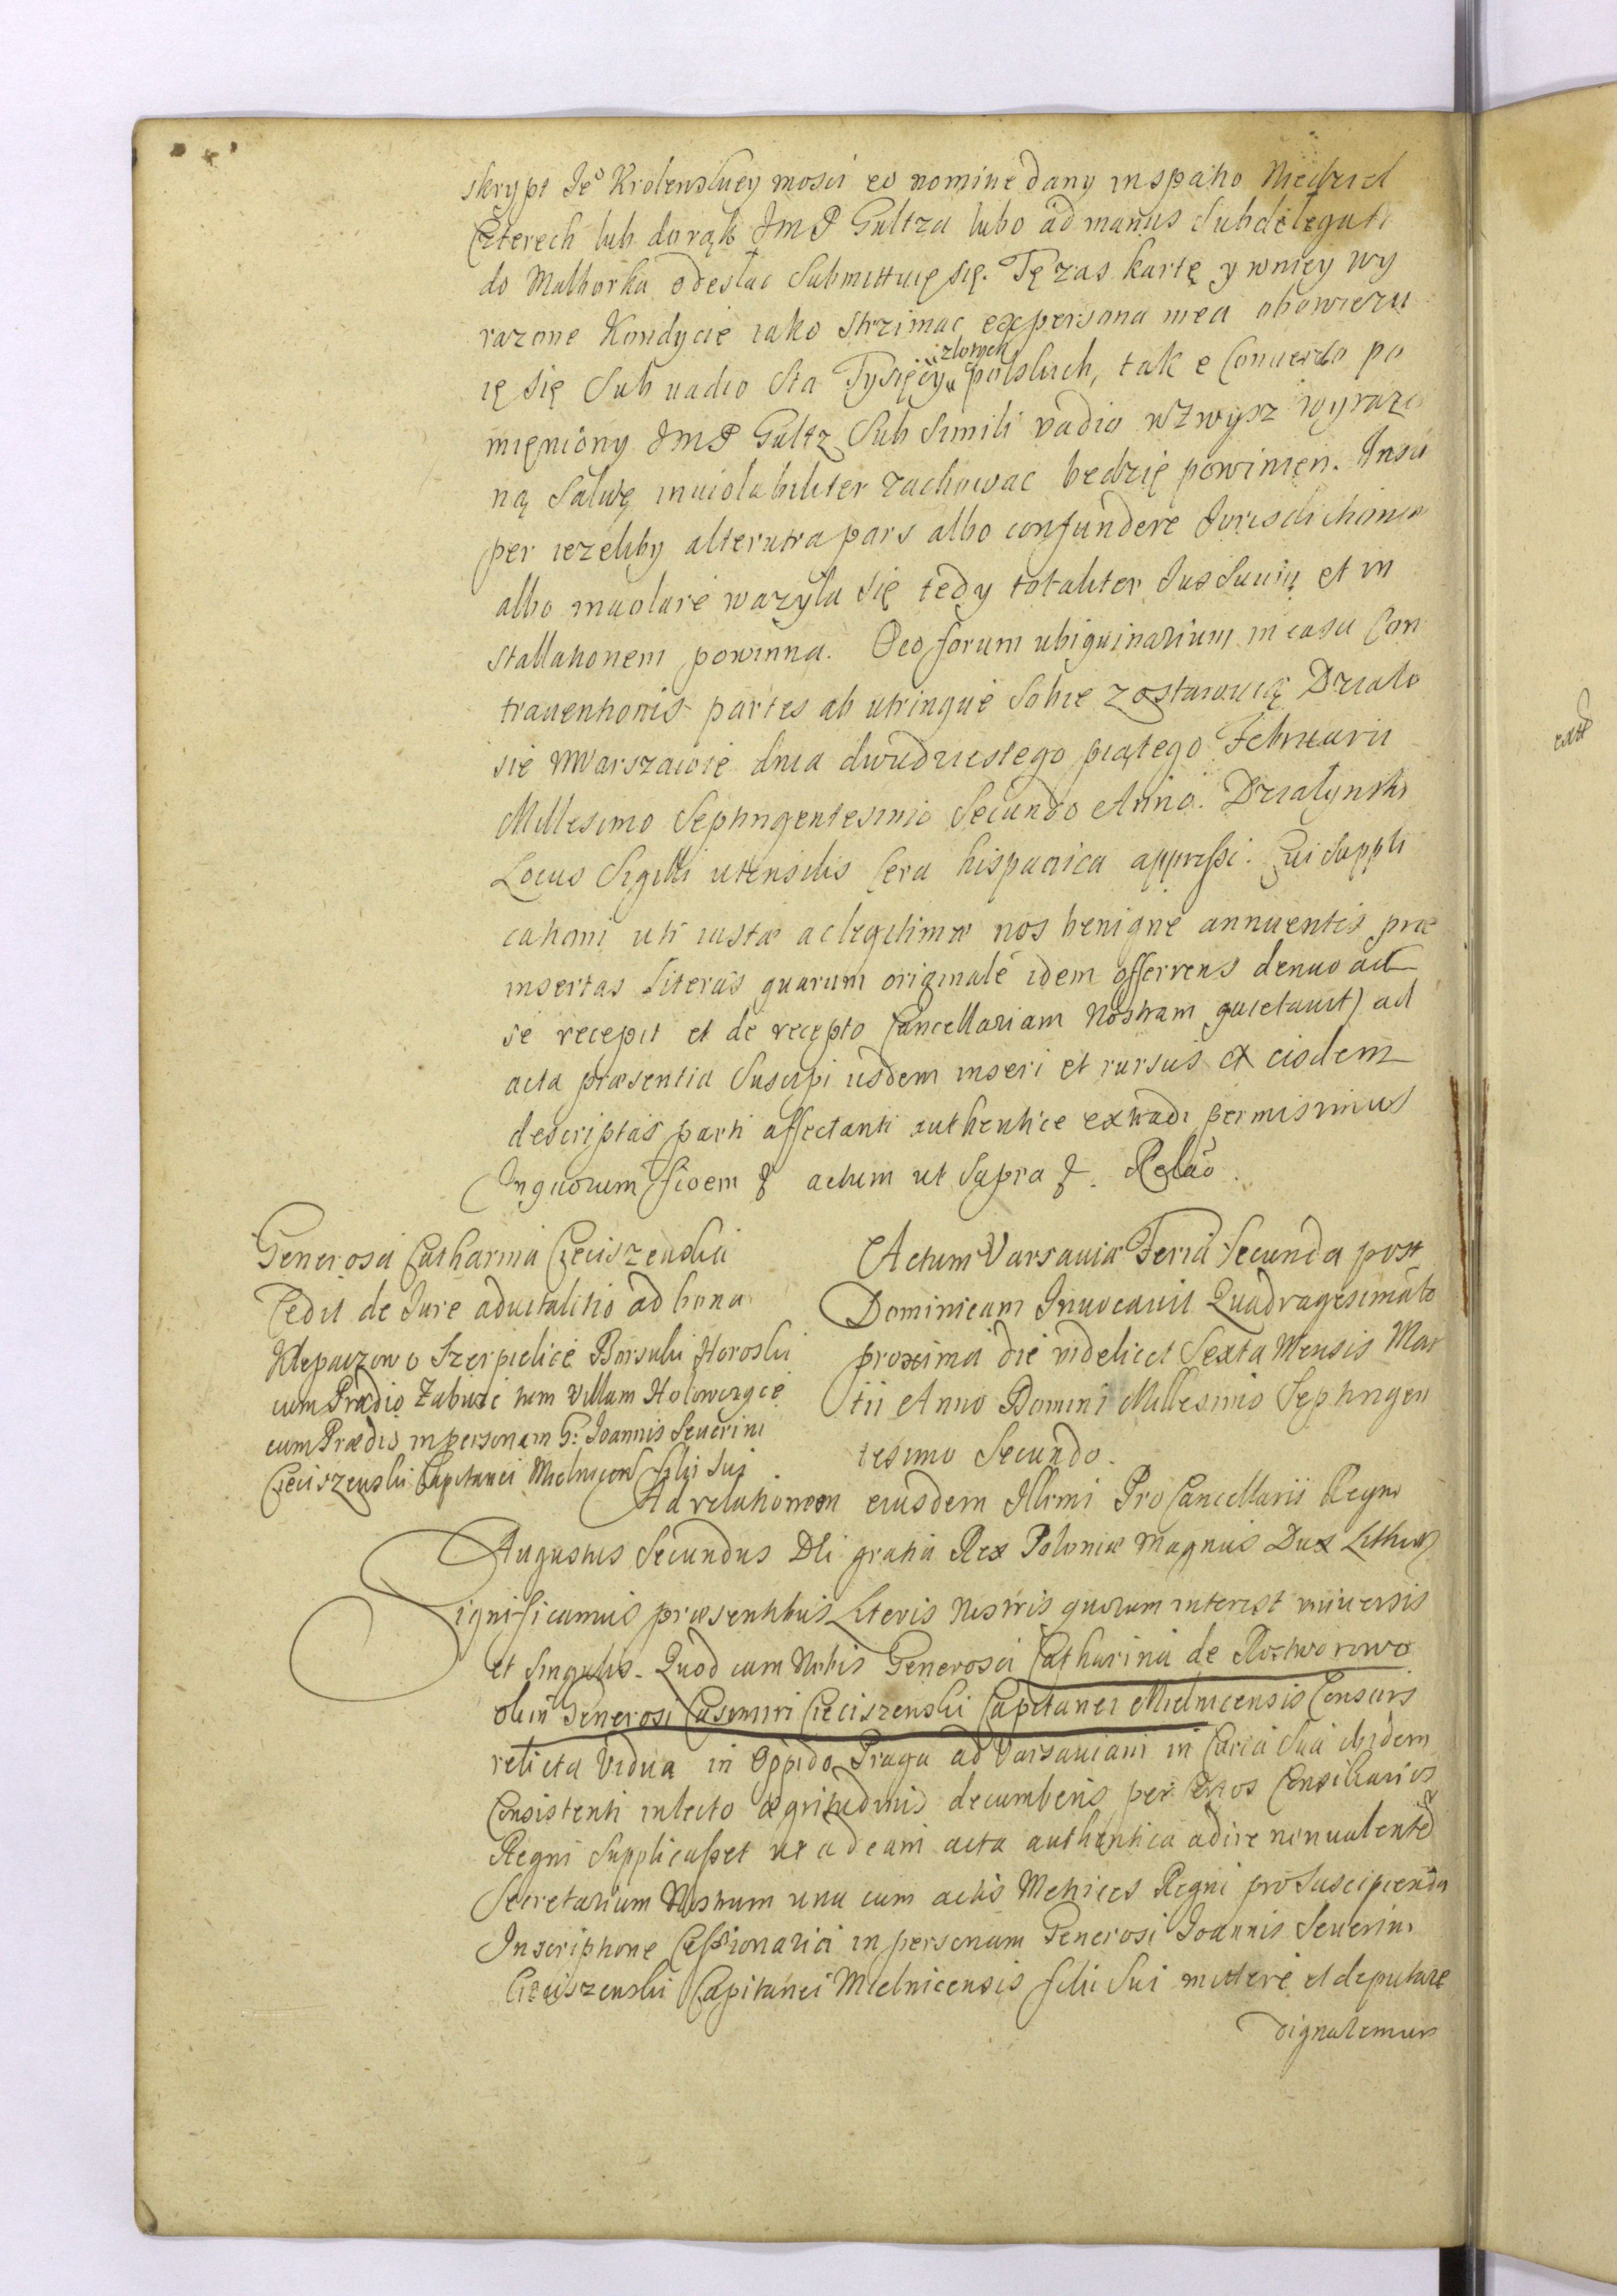 skrypt Jeo Krolewskiey mosci eo nomine dany in spatio Niedziel
Czterech lub do rąk JmP Gultza lubo ad manus Subdelegati
do Malborka odesłac Submittuię się. Tę zas kartę y wniey wy
razone Kondycie iako strzimac ex persona mea obowiezu
ię się Sub vadio Sta Tysięcy złotych polskich, tak e Conuerso po
mięniony JmP Gultz Sub Simili vadio wzwysz wyrazo
ną Salwę inuiolabiliter zachowac bedzię powinien. Insu
per iezeliby alterutra pars albo confundere Jurisdictionem
albo inuolare wazyla się tedy totaliter Jus Suum et in
stallationem powinna. O co forum ubiquinarium in casu Con
trauentionis partes ab utrinque Sobie zostawuią Działo
się wWarszawie dnia dwudziestego piątego Februarii
Millesimo Septingentesimo Secundo Anno. Działynski
Locus Sigilli utensilis Cera hispanica appressi. Cui Suppli
cationi uti iustæ ac legitimæ nos benigne annuentes præ
insertas Literas quarum originale idem offerrens denuo ad
se recepit et de recepto Cancellariam Nostram quietauit) ad
acta præsentia Suscipi iisdem inseri et rursus ex eisdem
descriptas parti affectanti authentice extradi permisimus
In quorum fidem & actum ut Supra &. Relao.
Generosa Catharina Cieciszenska
Cedit de Jure aduitalitio ad bona
Klepaczowo Szerpielice Borsuki Horoszki
cum Prædio Zabuze tum Villam Holowczyce
cum Prædiis in personam G: Joannis Seuerini
Cieciszenski Capitanei Mielnicen filii Sui
Actum Varsauiæ Feria Secunda post
Dominicam Inuocauit Quadragesimale
proxima die videlicet Sexta Mensis Mar
tii Anno Domini Millesimo Septingen
tesimo Secundo.
Ad relationem eiusdem Illrmi ProCancellarii Regni
Augustus Secundus Dei gratia Rex Poloniæ Magnus Dux Lithuæ
Significamus præsentibus Literis Nostris quorum interest vniuersis
et singulis. Quod cum Nobis Generosa Catharina de Rostworowo
olim Generosi Casimiri Cieciszenski Capitanei Mielnicensis Consors
relicta Vidua in Oppido Praga ad Varsauiam in Curia Sua ibidem
Consistenti in lecto ægritudinis decumbens per Certos Consiliarios
Regni Supplicasset ut ad eam acta authentica adire non ualentem
Secretarium Nostrum una cum actis Metrices Regni pro Suscipienda
Inscriptione Cessionaria in personam Generosi Joannis Seuerini
Cieciszenski Capitanei Mielnicensis filii Sui mittere et deputare
dignaremur